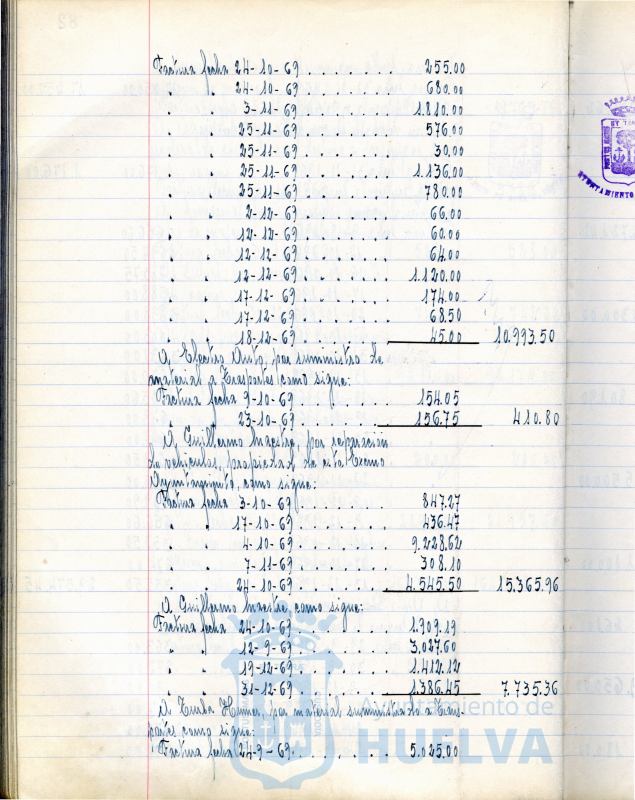 Factura fecha 24-10-69 . . . . . . . . 255.00
" " 24-10-69 . . . . . . . 680.00
" " 3-11-69 . . . . . . . 1.810.00
" " 25-11-69 . . . . . . . 576.00
" " 25-11-69 . . . . . . . 30.00
" " 25-11-69 . . . . . . . 1.136.00
" " 25-11-69 . . . . . . . 780.00
" " 2-12-69 . . . . . . . 66.00
" " 12-12-69 . . . . . . . 60.00
" " 12-12-69 . . . . . . . 64.00
" " 12-12-69 . . . . . . . 1.120.00
" " 17-12-69 . . . . . . . 174.00
" " 17-12-69 . . . . . . . 68.50
" " 18-12-69 . . . . . . . 45.00 10.993.50
A, Electro Auto, por suministro de
material a Trasportes como sigue:
Factura fecha 9-10-69 . . . . . . . 154.05
" " 23-10-69 . . . . . . . 156.75 410.80
A, Guillermo Maestre, por reparación
de vehiculos, propiedad de este Excmo
Ayuntamiento, como sigue:
Factura fecha 3-10-69 . . . . . . . 847.27
" " 17-10-69 . . . . . . . 436.47
" " 4-10-69 . . . . . . . 9.228.62
" " 7-11-69 . . . . . . . 308.10
" " 24-10-69 . . . . . . . 4.545.50 15.365.96
A, Guillermo Maestre, como sigue:
Factura fecha 24-10-69 . . . . . . . 1.909.19
" " 12-9-69 . . . . . . . 3.027.60
" " 19-12-69 . . . . . . . 1.412.12
" " 31-12-69 . . . . . . . 1.386.45 7.735.36
A, por material suministrado a Tras-
portes como sigue:
Factura fecha 24-9-69 . . . . . . . 5.025.00
Ayuntamiento de
HUELVA
AYUNTAMIENTO